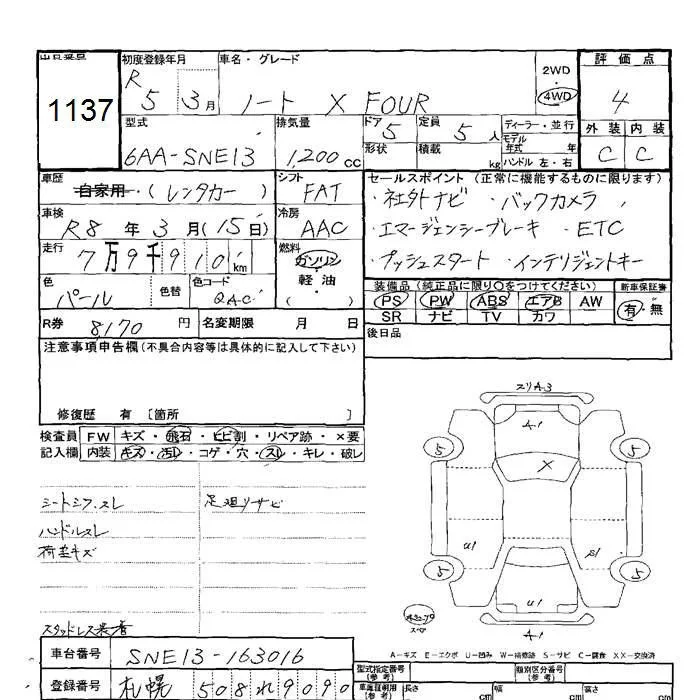 1137
初度登録年月 車名・グレード 2WD 評価点
R5 3月 ノート X FOUR 4WD 4
型式 排気量 ドア 5 定員 5人 ディーラー・並行 外装 内装
6AA-SNE13 1,200cc 形状 積載 kg モデル年式 年式 ハンドル 左・右 C C
車歴 自家用・(レンタカー) シフト FAT セールスポイント (正常に機能するものに限ります)
・社外ナビ ・バックカメラ
車検 R8年3月(15日) 冷房 AAC ・エマージェンシーブレーキ ・ETC
走行 7万9千910km 燃料 ガソリン・軽油・( ) ・プッシュスタート ・インテリジェントキー
色 パール 色替 色コード QAC 装備品(純正品に限り○をつけてください) 新車保証書
PS PW ABS エアB AW 有・無
R券 8170円 名変期限 月 日 SR ナビ TV カワ
注意事項申告欄(不具合内容等は具体的に記入して下さい) 後日品
修復歴 有 [箇所 ]
検査員 FW キズ・飛石・ヒビ割・リペア跡・×要
記入欄 内装 キズ・汚レ・コゲ・穴・スレ・キレ・破レ
スリA3
A1
5 5
X
シートシワ、スレ 足廻リサビ
ハンドルスレ
荷室キズ
U1 S1
5 5
U1
スペア
A1
スタッドレス装着
A-キズ E-エクボ U-凹み W-補修跡 S-サビ C-腐食 XX-交換済
車台番号 SNE13-163016
型式指定番号(参考) 類別区分番号(参考)
登録番号 札幌 508れ9090
cm 幅 cm 高さ cm